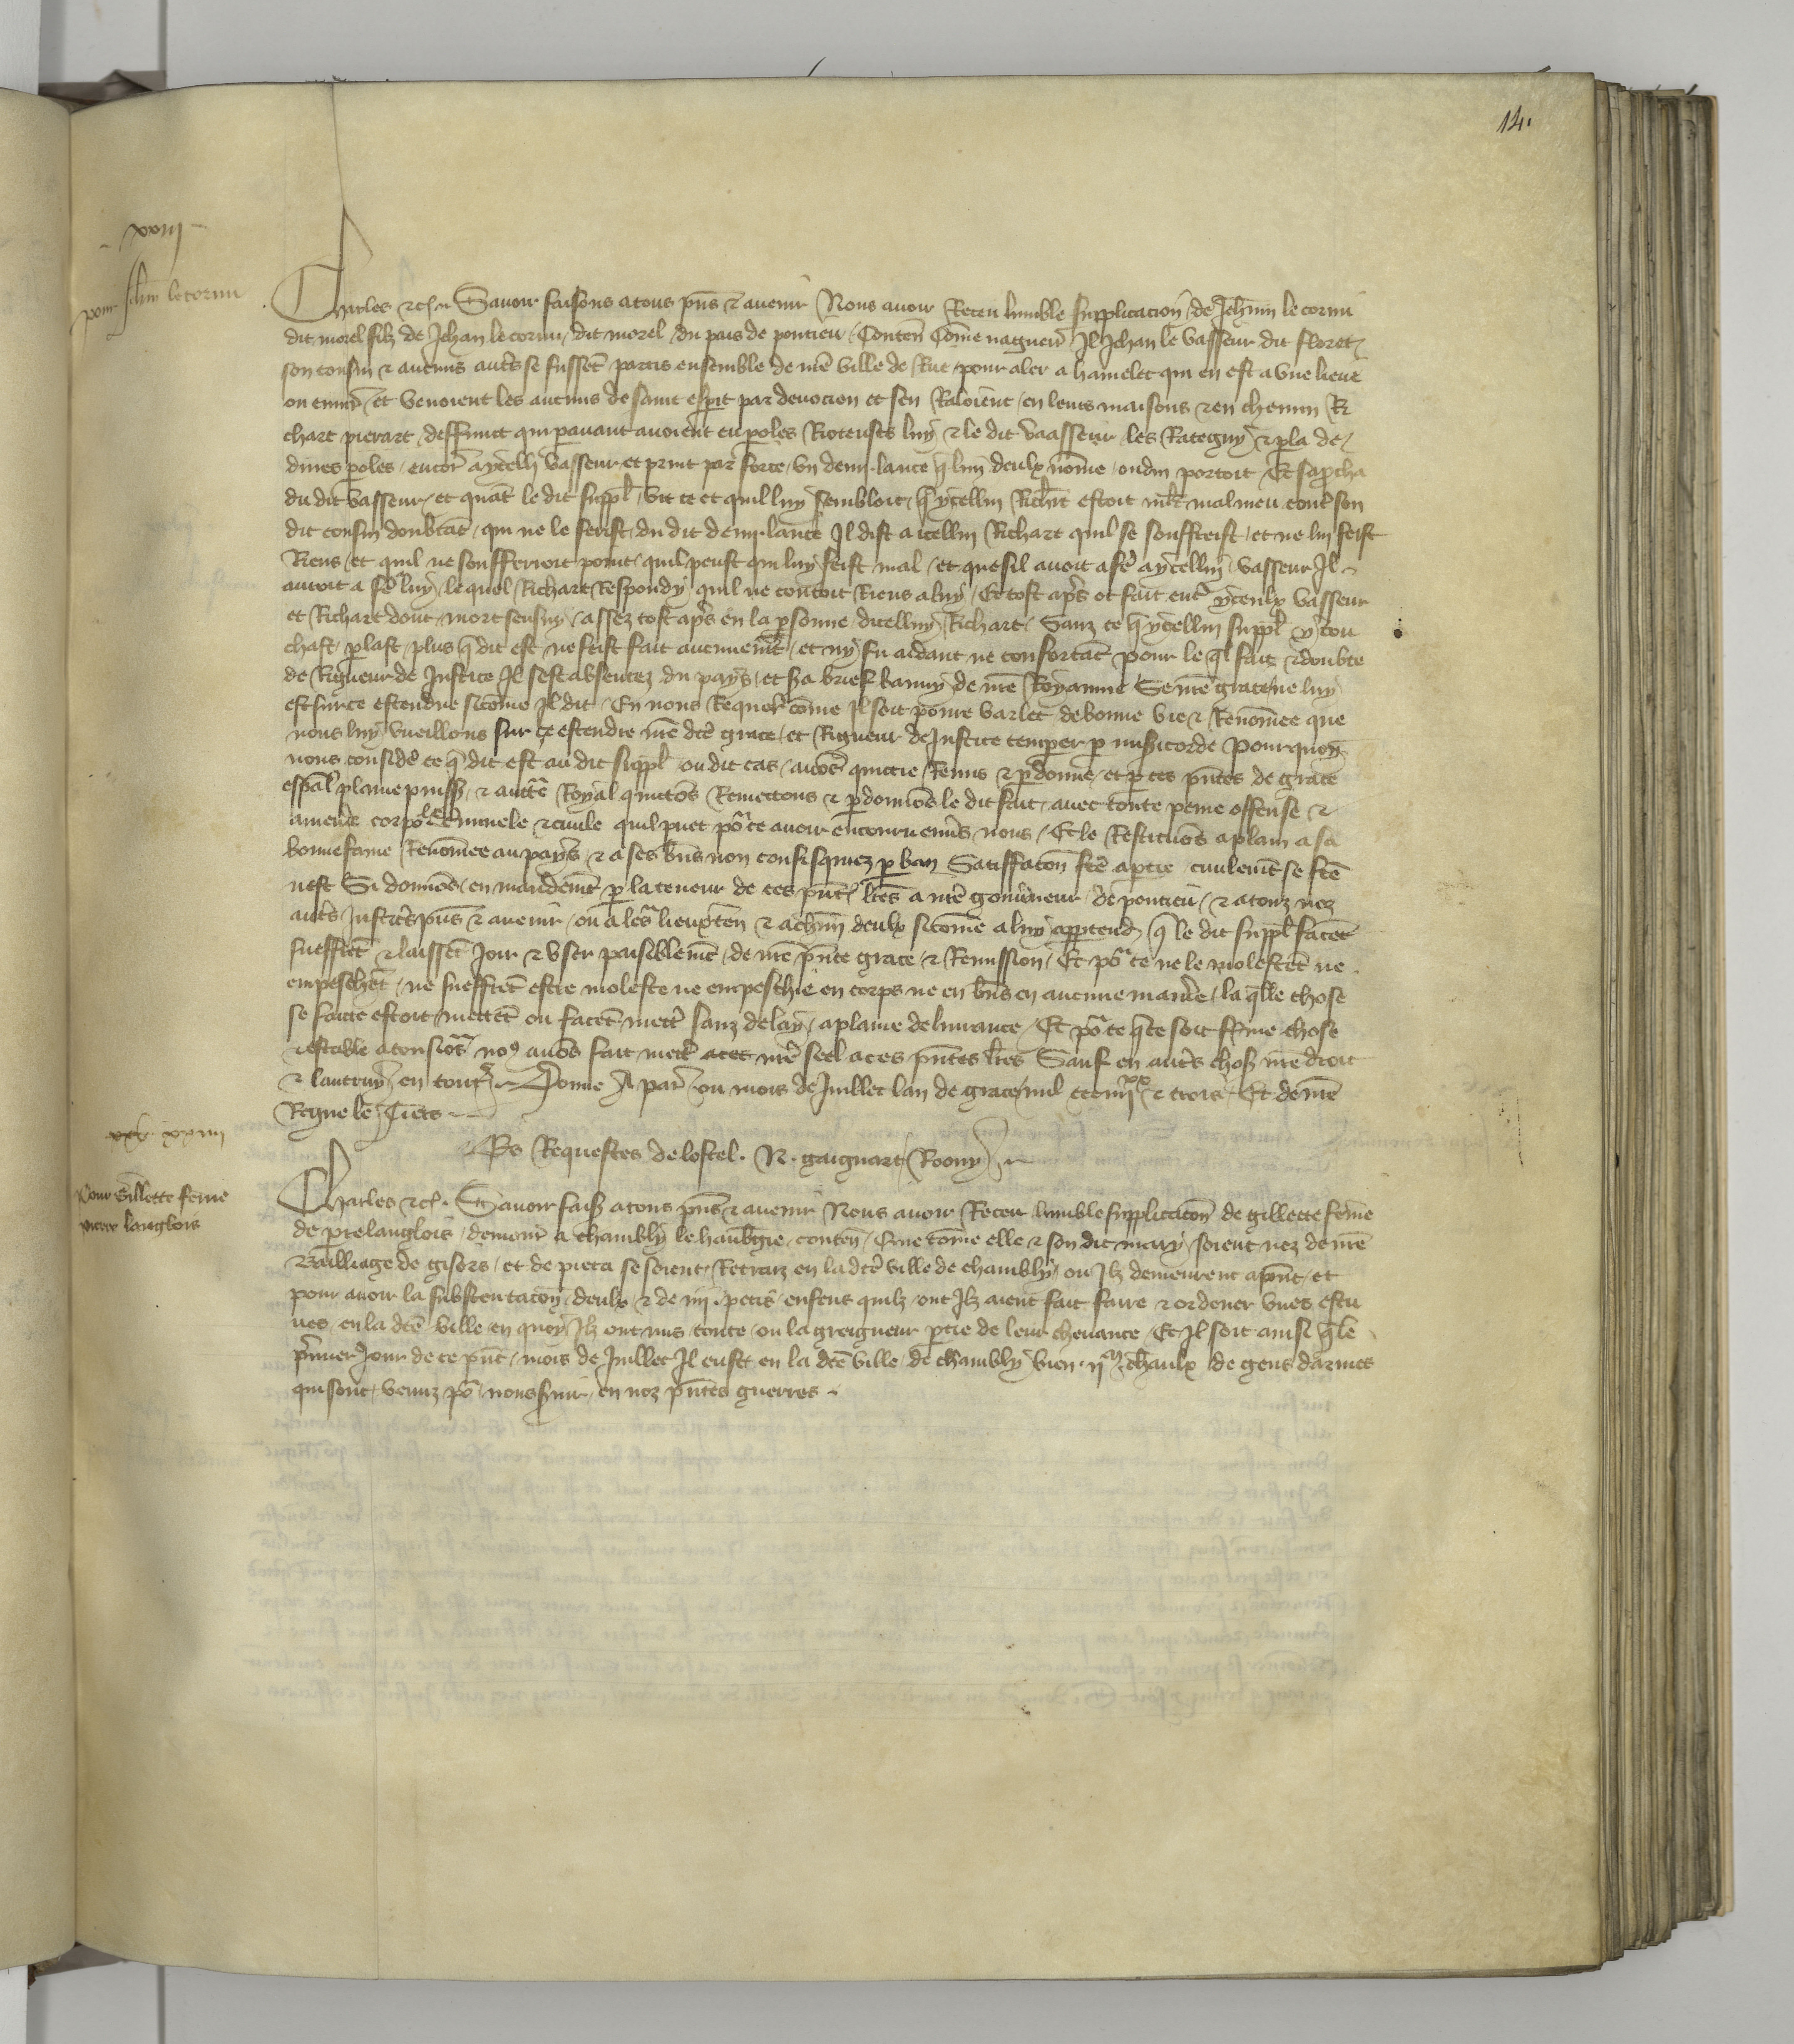 14.
xxiij
pour Jehan le cornu
Charles etc. Savoir faisons a tous pns & avenir Nous avoir Receu lumble supplicacion de Jehnin le cornu
dit morel filz de Jehan le cornu dit morel du pais de pontieu Conten Come naguer Il Jehan le vasseur dit floret
son cousin & aucuns autres se fussent partis ensemble de nre ville de Rue pour aler a hamelet qui en est a une lieue
ou envir et venoient les aucuns de saint espit par devocion et sen Raloient en leurs maisons & en chemin Ri
chart pierart deffunct qui paravant avoient eu poles Rioteuses luy & le dit vaasseur les
dines poles encor a ycelli vasseur et print par force un demi lance q lun deulx nome oudin portoit Et saprocha
du dit vasseur et quant le dit suppl vit ce et quil luy sembloit q ycellui Richart estoit mlt mal meu contre son
dit cousin doubtant qui ne le ferist du dit demi lance Il dist a icellui Richart quil se souffreist et ne lui feist
Riens et quil ne soufferroit point quil peust qui luy feist mal et que sil avoit a fe a ycellui vasseur Il
auroit a fe a luy lequel Richart Respondy quil ne contoit Riens a luy Et tost apres ot fait entre yceulx vasseur
et Richart dont mort sensuy assez tost apres en la psonne dicelluy Richart Sanz ce q ycellui suppl y tou
chast plast plus q dit est ne feist fait aucunement et ny fu aidant ne confortant Pour le ql fait & doubte
de Rigueur de Justice Il sest absentez du pays et sera brief banny de nre Royaume Se nre grace ne luy
est sur ce estendue sicome Il dit En nous Requer come Il soit povre varlet de bonne vie & Renomee que
nous luy vueillons sur ce estendre nre dce grace et Rigueur de Justice temperer p misicorde Pourquoy
nous conside ce q dit est au dit suppl ou dit cas avons quictie Remis & pdonne et p ces pntes de grace
espal plaine puiss & auctte Royal quictos Remectons & pdonnos le dit fait avec toute peine offense &
amende corpole Criminele & civile quil puet por ce avoir encouru envs nous Et le Restituos a plain a sa
bonne fame Renomee au pays & a ses bns non confisquez p ban Satisffacon fce a ptie civilemt se fce
nest Si donnos en mandemt p la teneur de ces pnt lres a nre gouvneur de pontieu & a touz noz
autrs Justicrs pns & avenir ou a leurs lieuxten & a chun deulx sicome a luy appartend q le dit suppl facent
sueffrent & laissent Jouir & user paisiblemt de nre pnte grace & Remission Et por ce ne le molestent ne
empeschent ne sueffrent estre moleste ne empeschie en corps ne en bns en aucune maniere la qlle chose
se faicte estoit mettent ou facent mettre sanz delay a plaine delivrance Et por ce q ce soit ferme chose
& estable a tousiors nos avons fait mettre nre seel a ces pntes lres Sauf en autres choses nre droit
& lautruy en toutes Donne A paris ou mois de Juillet lan de grace mil ccc iiijxx & trois Et de nre
Regne le Tiers
Es Requestes de lostel. N. gaignart Roony
xxiiij
Pour Gillette feme
pierre langlois
Charles etc. Savoir faiss a tous pns & avenir Nous avoir Receu lumble supplicacon de gillette feme
de pre langlois demour a chambly le haubgie conten Come elle & son dit mary soient nez de nre
Bailliage de gisors et de pieca se soient Retraiz en la dce ville de chambly ou Ilz demeurent a pnt et
pour avoir la substentacon deulx & de iiij petis enfens quilz ont Ilz aient fait faire & ordener unes estu
ves en la dce ville en quoy Ilz ont mis toute ou la greigneur ptie de leur chevance Et Il soit ainsi q le
pmier Jour de ce pnt mois de Juillet Il eust en la dce ville de chambly bien ijm chevaulx de gens darmes
qui sont venuz por nous servir en noz pntes guerres